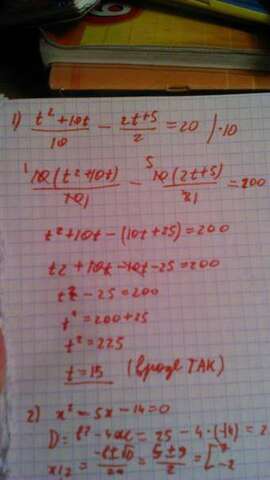 1) (t² + 10t)/10 - (2t+5)/2 = 20 | · 10
10(t²+10t)/10 - 10(2t+5)/2 = 200
t² + 10t - (10t + 25) = 200
t2 + 10t - 10t - 25 = 200
t² - 25 = 200
t² = 200 + 25
t² = 225
t = 15 (вроде ТАК)
2) x² - 5x - 14 = 0
D = b² - 4ac = 25 - 4 · (-14) = 2
x1/2 = (-b±√D)/2a = (5±9)/2 = [7
-2